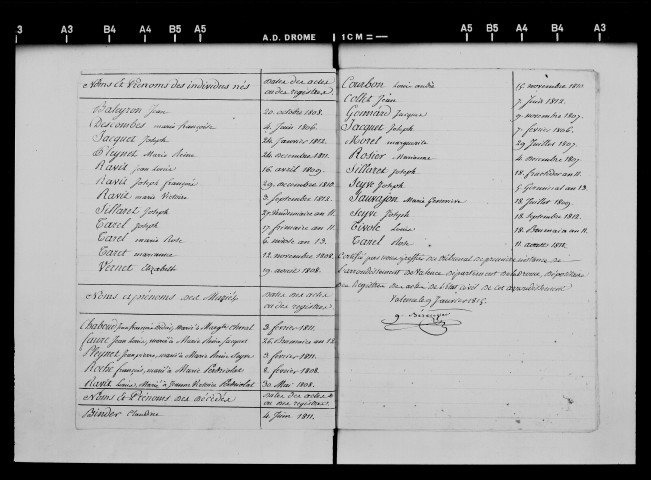 3 A3 B4 A4 B5 A5 A.D. DROME 1CM = A5 B5 A4 B4 A3
Noms et Prénoms des individus nés Dates des actes ou des registres.
Baleyron Jean 20 octobre 1808.
Descombes marie françoise 4 Juin 1806.
Jacquet Joseph 24 Janvier 1812.
Pleynet Marie Reine 24 decembre 1811.
Ravit jean louis 16 avril 1809.
Ravit Joseph françois 29 decembre 1810
Ravit marie Victoire 3 Septembre 1812.
Sillaret Joseph 27 Vendemiaire an 11.
Tarel joseph 17 frimaire an 11
Tarel marie Rose 6 nivose an 13.
Taret marianne 12 novembre 1808.
Vernet Elizabeth 19 avril 1808.
Noms et prénoms des Mariés Dates des actes ou des registres
Chaboud Jean françois, Marié à Chenal 3 fevrier 1811.
faure Jean Louis, Marié à Marie Jacquet 26 Brumaire an 12
Pleynet Jean pierre, marié à Marie Seyve 3 fevrier 1811.
Roche françois, marié à Marie 8 fevrier 1808.
Ravit Louis, Marié à Jeanne Victoire 30 Mai 1808.
Noms et Prénoms des décédés Dates des actes ou des registres.
Binder Claudine 4 Juin 1811.
Courbon louis andré 15 novembre 1810.
Collet Jean 7 Juin 1812.
Gomard Jacques 9 novembre 1807.
Jacquet Joseph 7 fevrier 1806.
Morel marguerite 29 Juillet 1807.
Rosier Marianne 4 decembre 1807
Sillaret Joseph 18 fructidor an 11.
Seyve Joseph 5 Germinal an 13.
Sauvajon Marie Genevieve 18 Juillet 1809.
Seyve Joseph 13 Septembre 1812.
Tivole Louis 18 Brumaire an 11
Tarel Rose 11 1812.
Certifié par nous greffier du tribunal de premiere instance de
l'arrondissement de Valence departement de la Drome, dépositaire
des Registres des actes de l'état civil de cet arrondissement
Valence le 9 Janvier 1815.